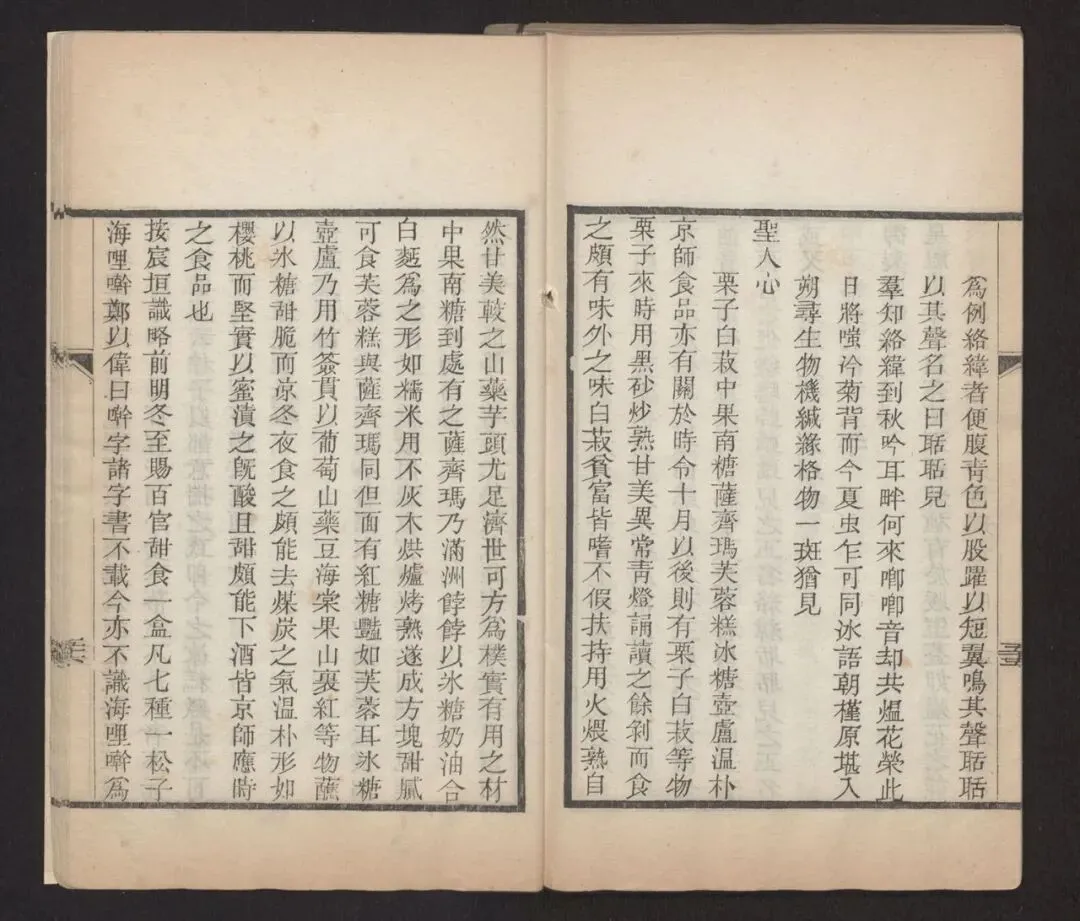 為例絡緯者便腹青色以股躍以短翼鳴其聲聒聒
以其聲名之曰聒聒兒
羣知絡緯到秋吟耳畔何來唧唧音却共熅花榮此
日將嗤冷菊背而今夏虫乍可同冰語朝槿原堪入
朔尋生物機緘緣格物一斑猶見
聖人心
栗子白菽中果南糖薩齊瑪芙蓉糕冰糖壺盧温朴
京師食品亦有關於時令十月以後則有栗子白菽等物
栗子來時用黑砂炒熟甘美異常青燈誦讀之餘剝而食
之頗有味外之味白菽貧富皆嗜不假扶持用火煨熟自
然甘美較之山藥芋頭尤足濟世可方為樸實有用之材
中果南糖到處有之薩齊瑪乃滿洲餑餑以氷糖奶油合
白麪為之形如糯米用不灰木烘爐烤熟遂成方塊甜膩
可食芙蓉糕與薩齊瑪同但面有紅糖豔如芙蓉耳氷糖
壺盧乃用竹簽貫以葡萄山藥豆海棠果山裏紅等物蘸
以氷糖甜脆而凉冬夜食之頗能去煤炭之氣温朴形如
櫻桃而堅實以蜜漬之既酸且甜頗能下酒皆京師應時
之食品也
按宸垣識略前明冬至賜百官甜食一盒凡七種一松子
海哩𠹌鄭以偉曰𠹌字諸字書不載今亦不識海哩𠹌為